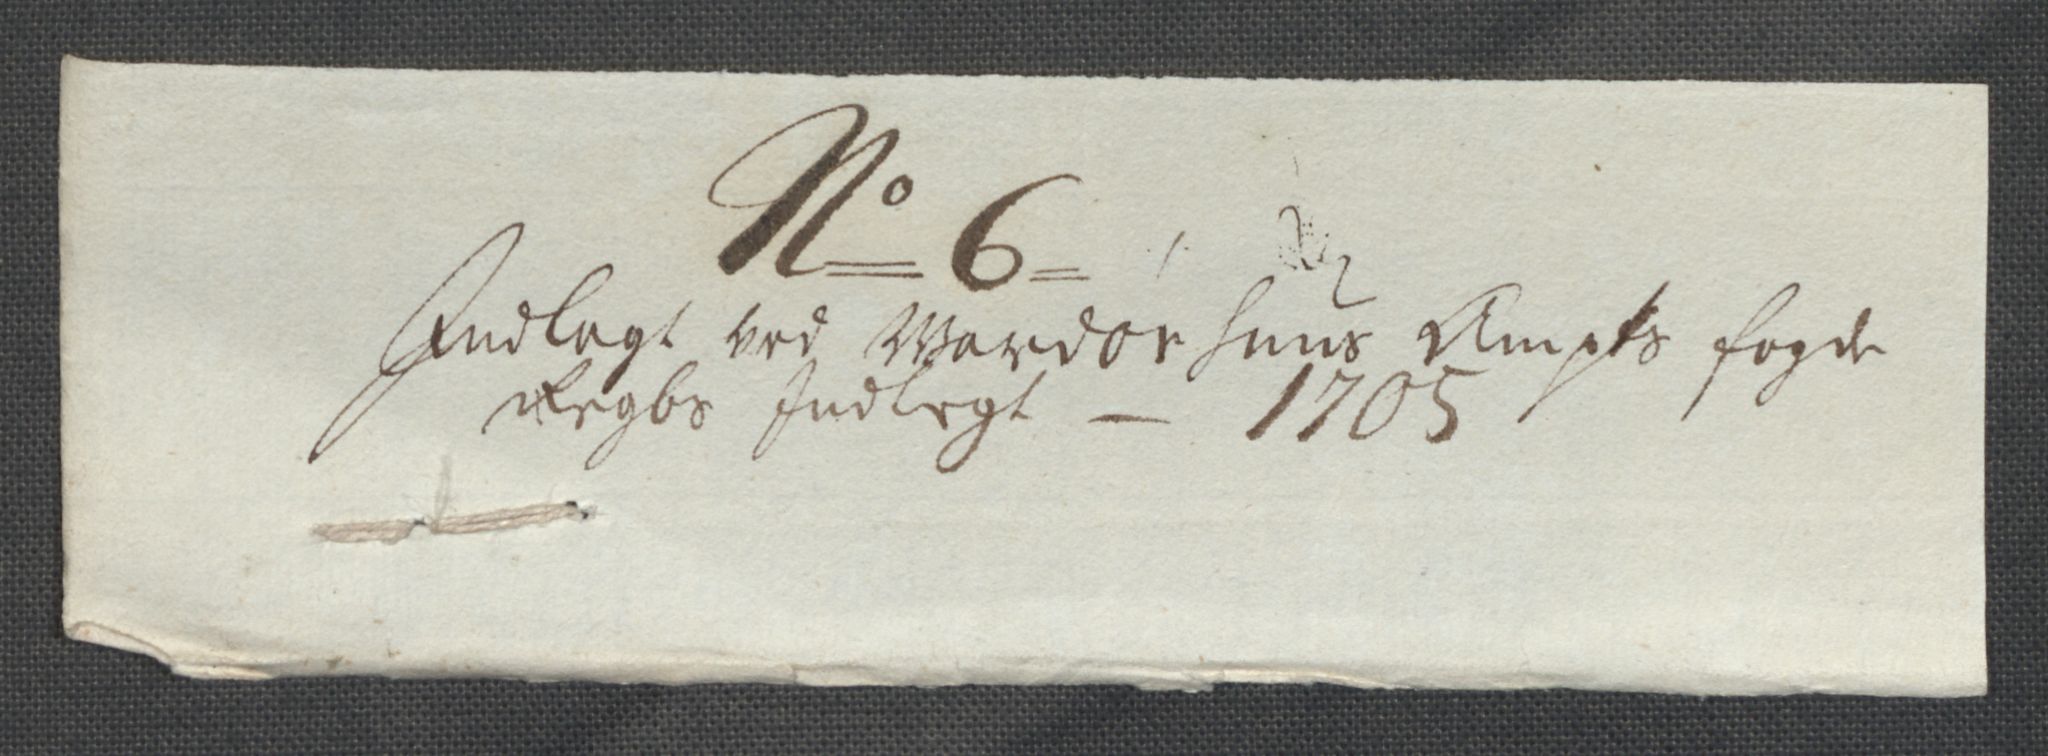 No 6
Indlagt ved Wardøehuus Ampts fogde
Regbs Indlegt — 1705